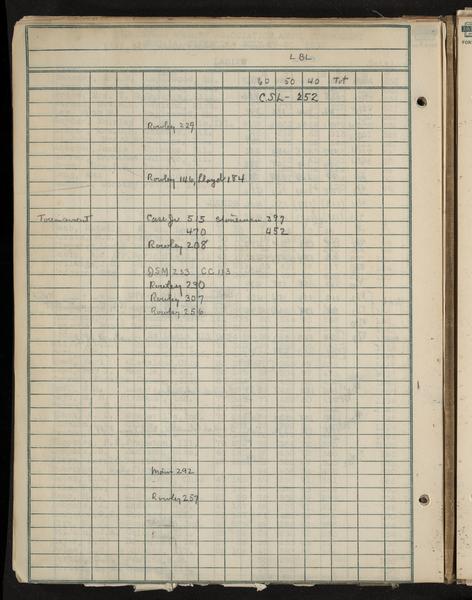 LBL
60 50 40 Tot
CSL- 252
Rowley 229
Rowley 146, Lloyd 184
Tournament Case Jr 515 397
470 452
Rowley 208
JSM 233 CC 113
Rowley 290
Rowley 307
Rowley 256
292
Rowley 257